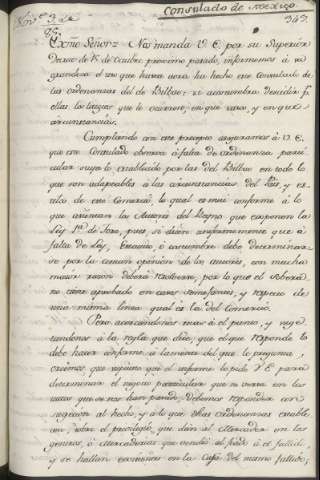 Nov.e 3 de
Consulado de Mexico
347.
Exmo Señor = Nos manda V. E. por su Superior
Decreto de 18 de Octubre proximo pasado, informemos á
grandeza el uso que hasta ahora ha hecho este Consulado de
las ordenanzas del de Bilbao; se acostumbra decidir p.r
ellas los litigios que le ocurren, en qué casos, y en qué
circunstancias.
Cumpliendo con este precepto aseguramos á V. E.
que este Consulado observa á falta de ordenanza parti-
cular suya lo establecido por las del Bilbao en todo lo
que son adaptables á las circunstancias del Pais, y es-
tilo de este Comercio, lo qual es mui conforme á lo
que asientan los Autores del Reyno que exponen la
Ley 1.a de Toro, pues si dicen uniformemente que á
falta de Ley, Estatuto, ó costumbre debe determinar-
se por la comun opinion de los autores, con mucha
maior razon deberá hacerse, por lo que el Sobera-
no tiene aprobado en casos semejantes, y respecto de
una misma linea qual es la del Comercio.
Pero acercandonos mas á el punto, y suje-
tandonos á la regla que dice, que el que responde lo
debe hacer conforme á la mente del que le pregunta,
creemos que supuesto que el informe lo pide V. E. para
determinar el negocio particular que se versa en los
autos que se nos han pasado, debemos responder con
sugecion al hecho, y á lo que dichas ordenanzas estable-
cen sobre el privilegio, que dan al Mercader en los
generos, ó Mercaderias que vendió al fiado á el fallido,
y se hallan existentes en la Casa del mismo fallido;